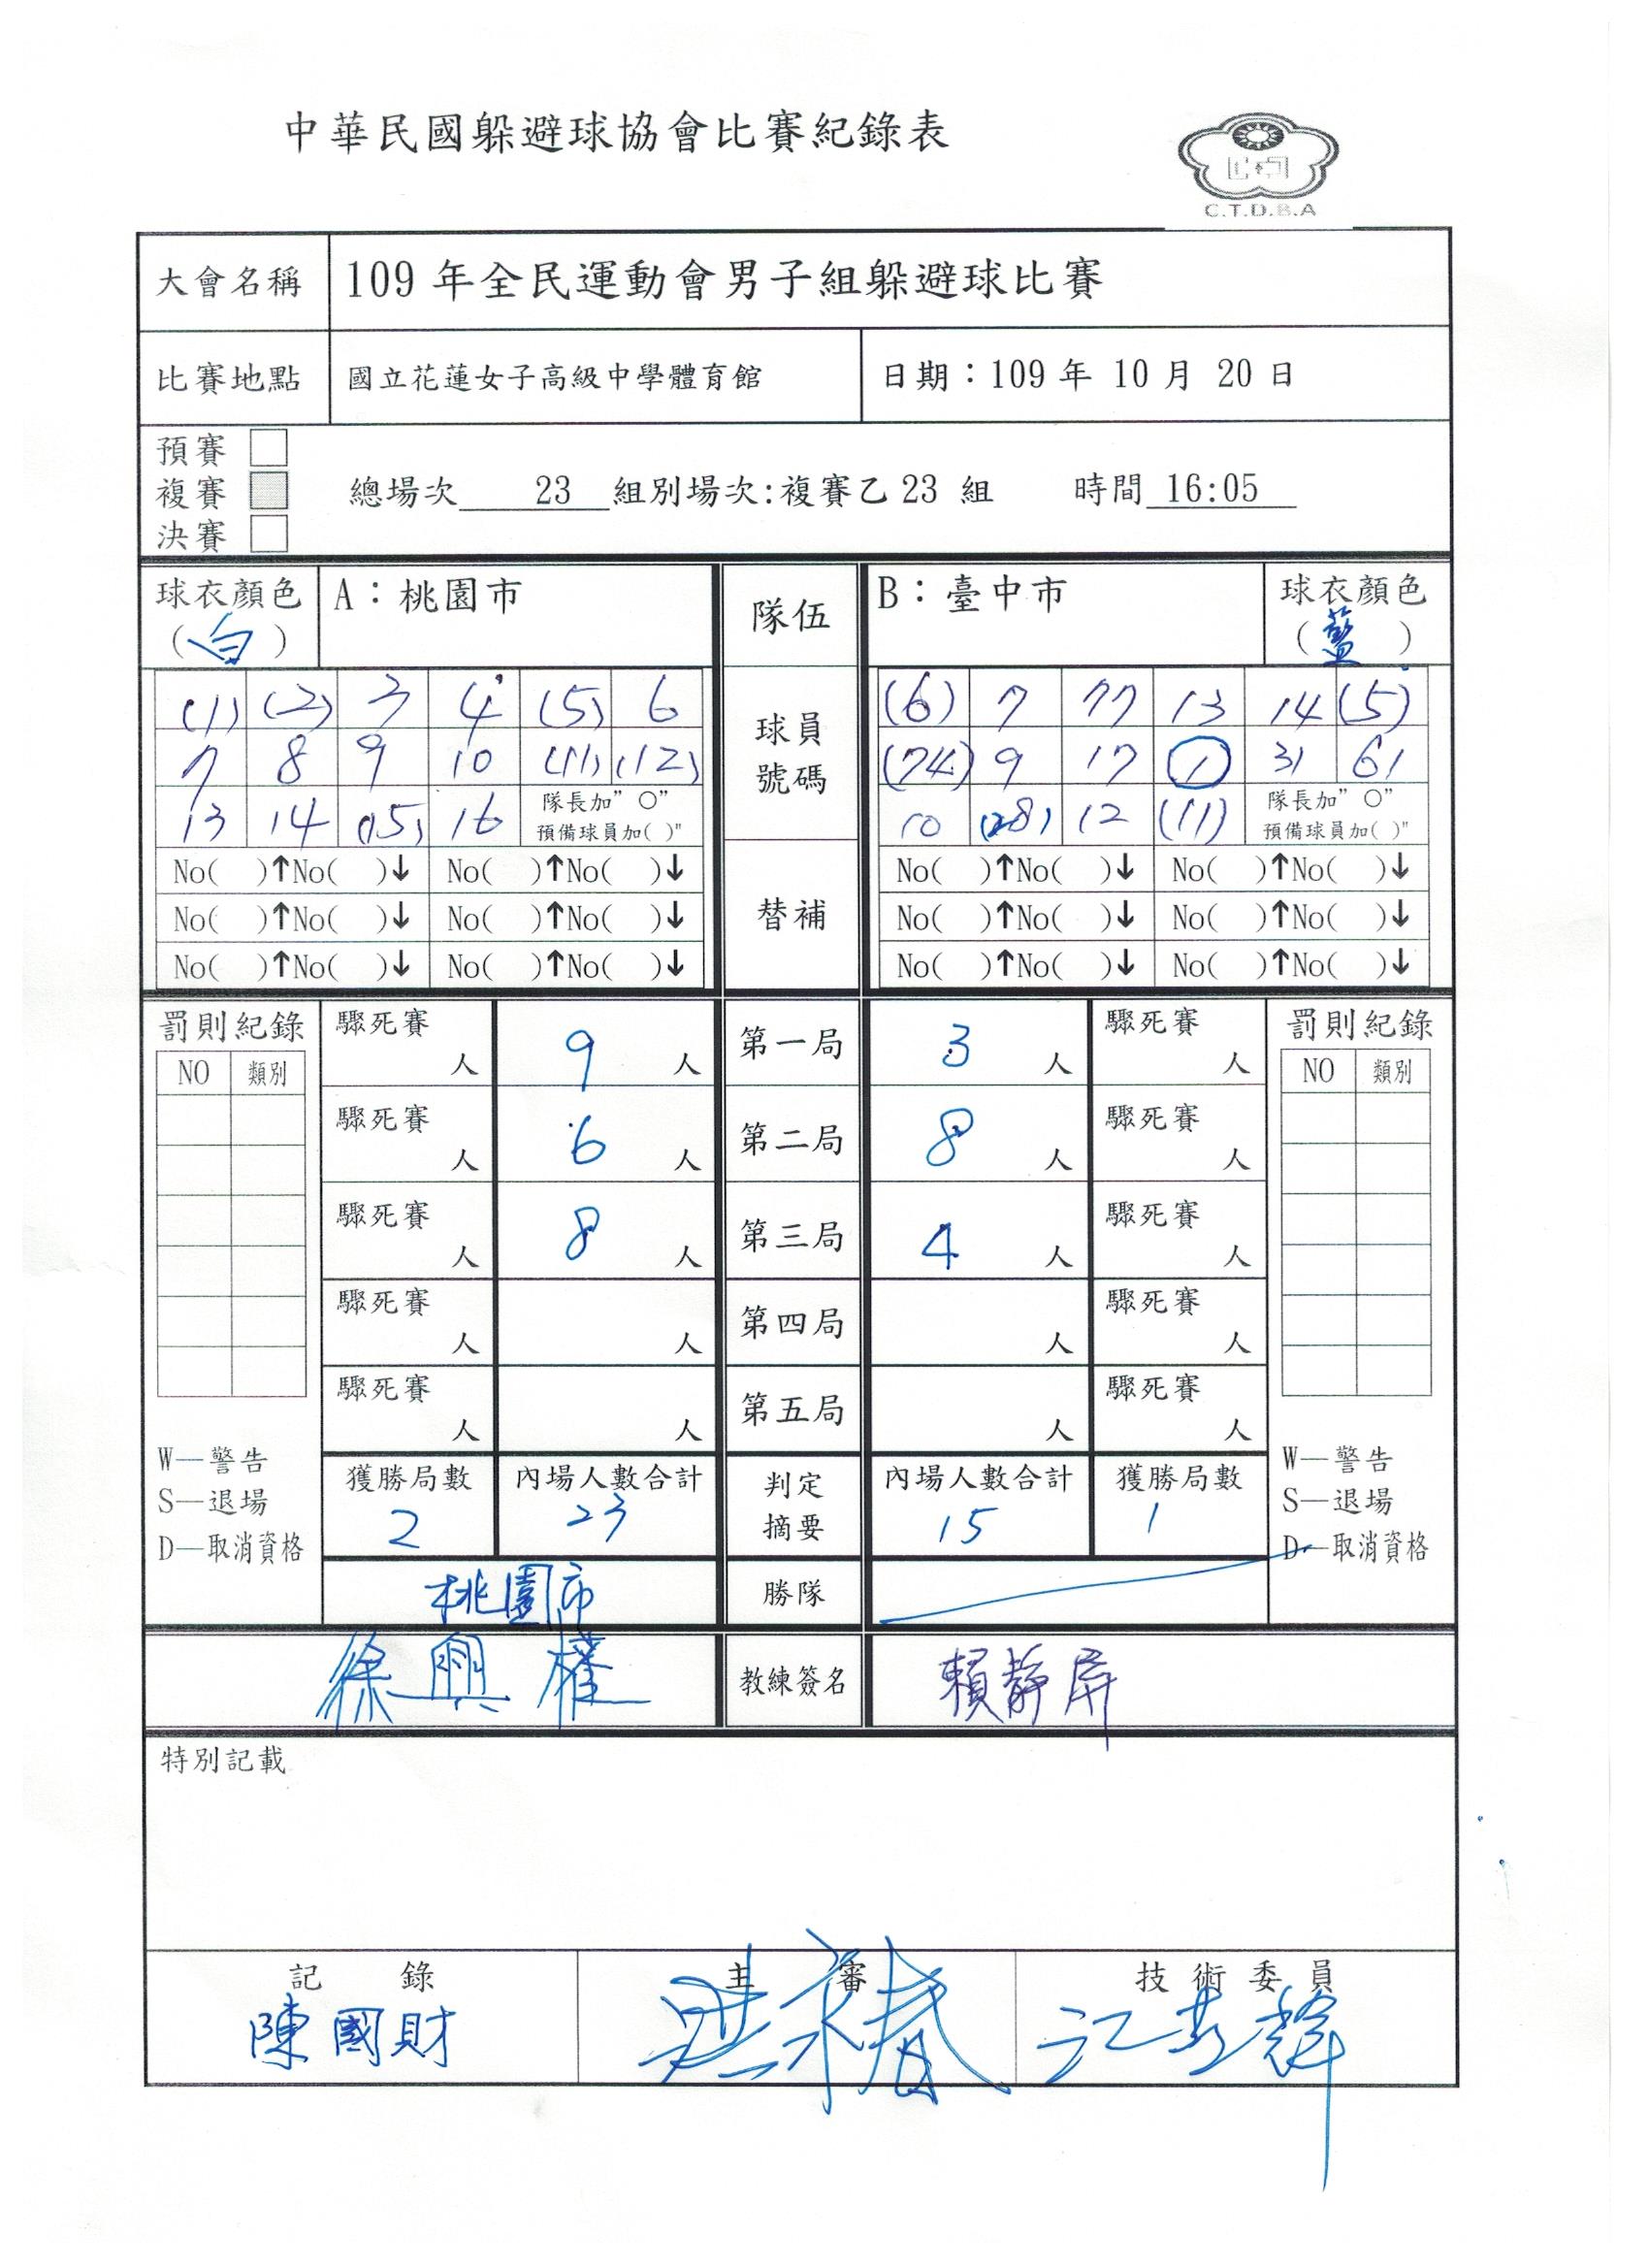 中華民國躲避球協會比賽紀錄表
C.T.D.B.A
大會名稱 109 年全民運動會男子組躲避球比賽
比賽地點 國立花蓮女子高級中學體育館 日期：109 年 10 月 20 日
預賽
複賽 總場次 23 組別場次:複賽乙 23 組 時間 16:05
決賽
球衣顏色 A：桃園市 隊伍 B：臺中市 球衣顏色
(白) (藍)
(1) (2) 3 4 (5) 6 球員號碼 (6) 7 77 13 14 (5)
7 8 9 10 (11) (12) (74) 9 17 1 31 61
13 14 (15) 16 隊長加" O" 預備球員加( )" 10 (28) 12 (11) 隊長加" O" 預備球員加( )"
No( )↑No( )↓ No( )↑No( )↓ 替補 No( )↑No( )↓ No( )↑No( )↓
No( )↑No( )↓ No( )↑No( )↓ No( )↑No( )↓ No( )↑No( )↓
No( )↑No( )↓ No( )↑No( )↓ No( )↑No( )↓ No( )↑No( )↓
罰則紀錄 驟死賽 人 9 人 第一局 3 人 驟死賽 人 罰則紀錄
NO 類別 NO 類別
驟死賽 人 6 人 第二局 8 人 驟死賽 人
驟死賽 人 8 人 第三局 4 人 驟死賽 人
驟死賽 人 人 第四局 人 驟死賽 人
驟死賽 人 人 第五局 人 驟死賽 人
W—警告 W—警告
S—退場 S—退場
D—取消資格 D—取消資格
獲勝局數 內場人數合計 判定摘要 內場人數合計 獲勝局數
2 23 15 1
桃園市 勝隊
徐興權 教練簽名 賴靜屏
特別記載
記 錄 主 審 技 術 委 員
陳國財